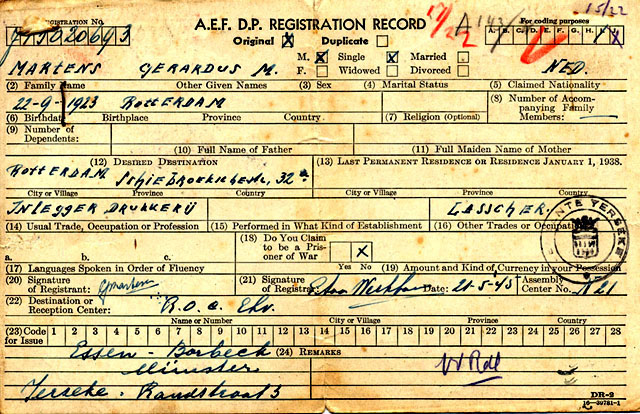 REGISTRATION NO.
A.E.F. D.P. REGISTRATION RECORD
For coding purposes
Original X Duplicate
A. B. C. D. E. F. G. H. I.
M. X Single X Married
MARTENS GERARDUS M. F. Widowed Divorced NED.
(2) Family Name Other Given Names (3) Sex (4) Marital Status (5) Claimed Nationality
22-9-1923 ROTTERDAM
(8) Number of Accompanying Family Members: —
(6) Birthdate Birthplace Province Country (7) Religion (Optional)
(9) Number of Dependents:
(10) Full Name of Father (11) Full Maiden Name of Mother
(12) DESIRED DESTINATION (13) LAST PERMANENT RESIDENCE OR RESIDENCE JANUARY 1, 1938.
ROTTERDAM 32
City or Village Province Country City or Village Province Country
INLEGGER DRUKKERIJ LASSCHER.
(14) Usual Trade, Occupation or Profession (15) Performed in What Kind of Establishment (16) Other Trades or Occupations
(18) Do You Claim to be a Prisoner of War X
a. b. c. Yes No
(17) Languages Spoken in Order of Fluency (19) Amount and Kind of Currency in your Possession
(20) Signature of Registrant: (21) Signature of Registrar: Date: 21-5-45 Assembly Center No.
(22) Destination or Reception Center: R.O.C. Ehv.
Name or Number City or Village Province Country
(23) Code for Issue 1 2 3 4 5 6 7 8 9 10 11 12 13 14 15 16 17 18 19 20 21 22 23 24 25 26 27 28
Essen - Borbeck (24) REMARKS
Münster
Yerseke - Randstraat 3
DR-2
16-39781-1